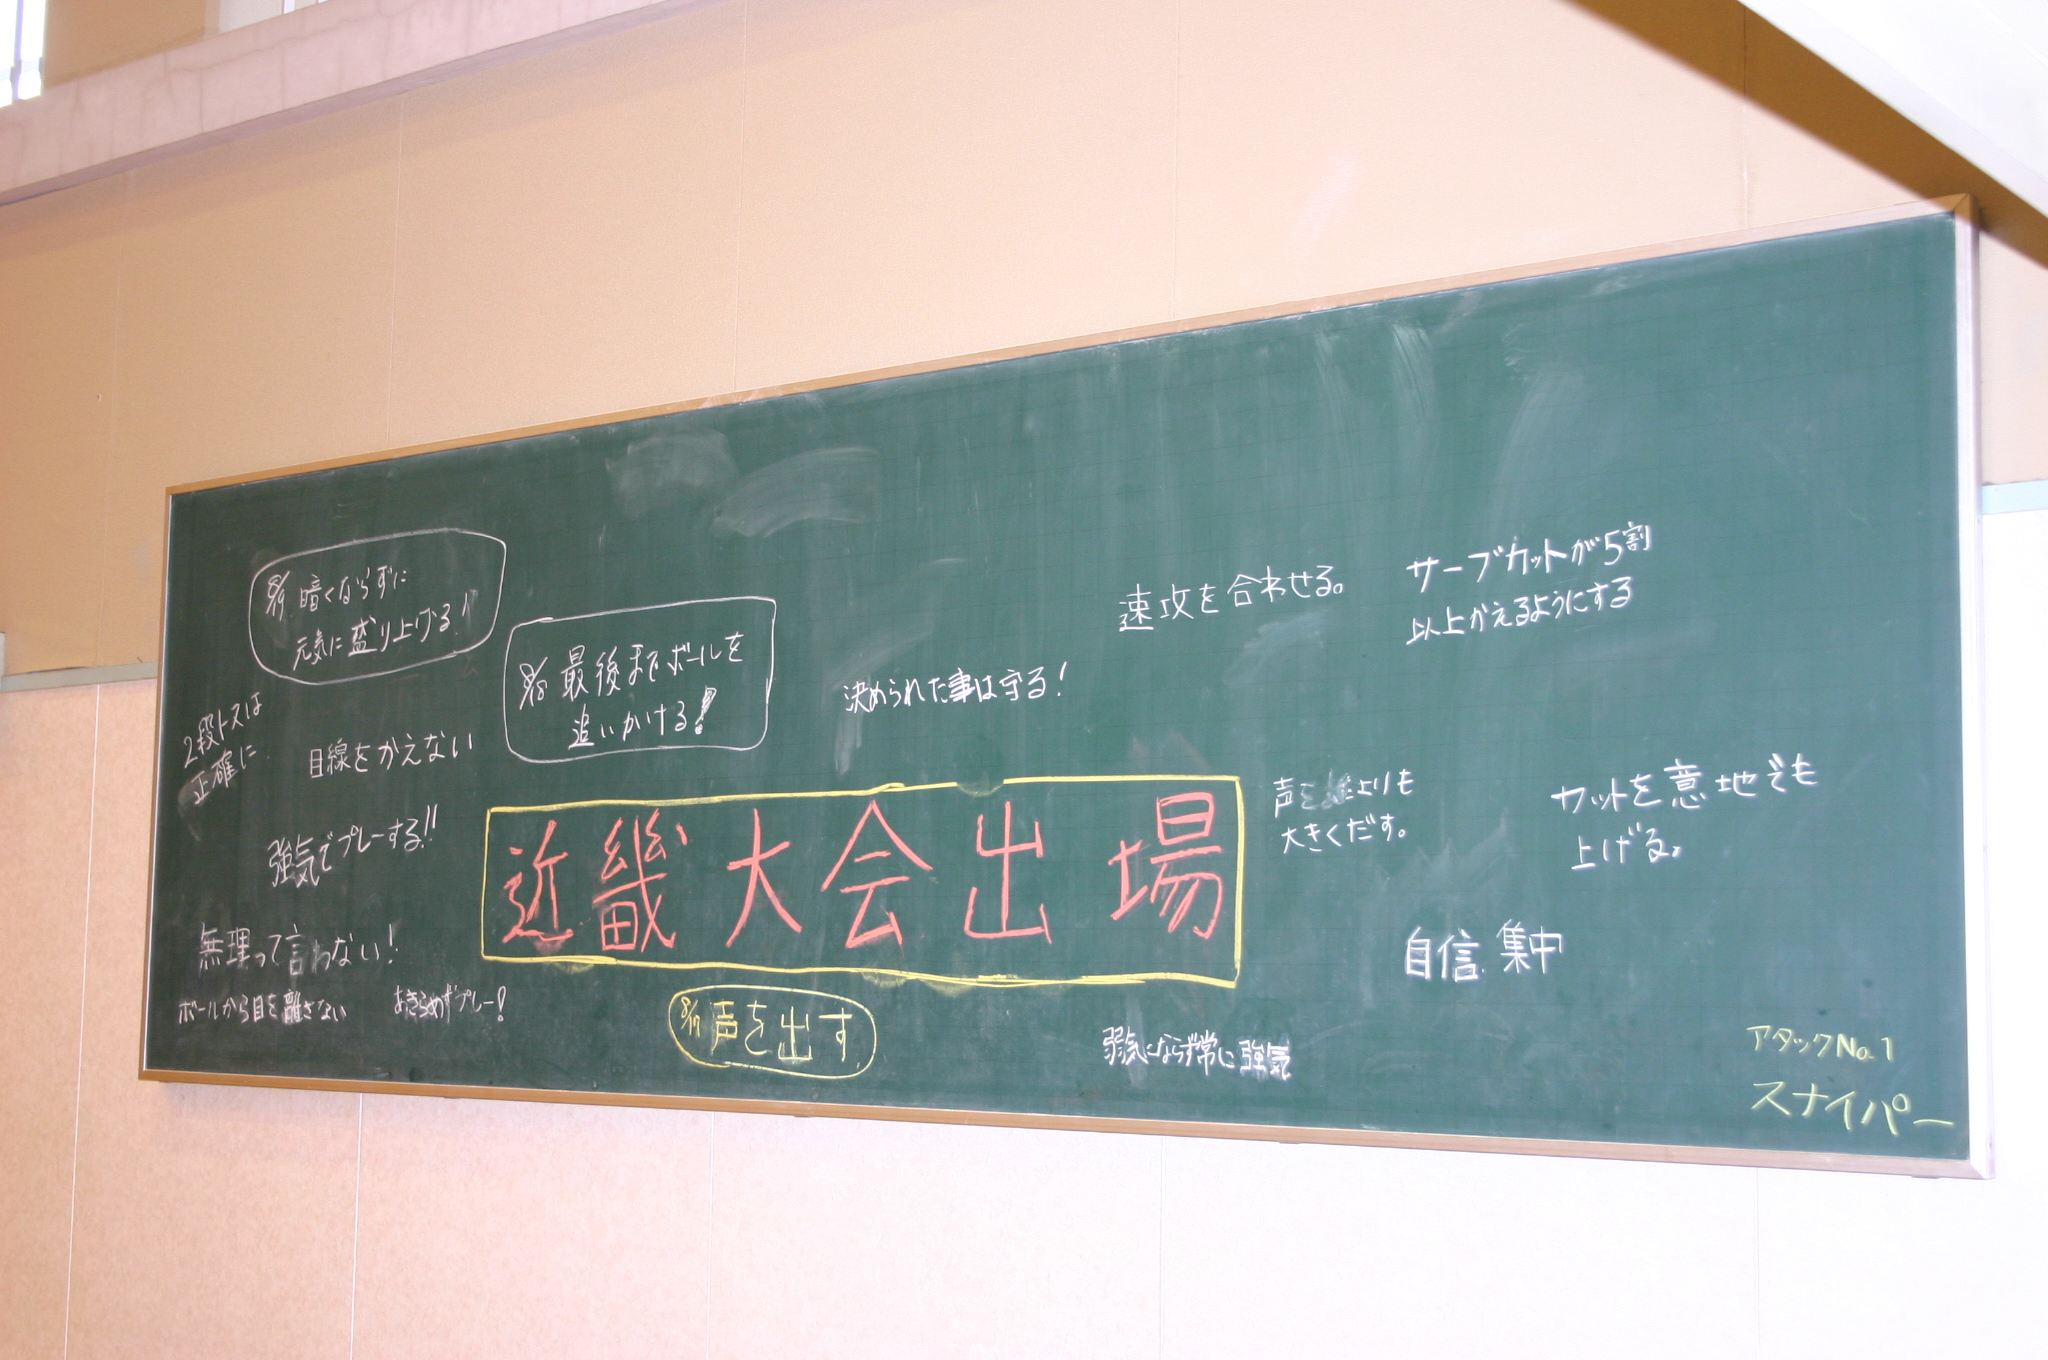 8/9 暗くならずに
元気に盛り上げる!!
8/10 最後までボールを
追いかける!
決められた事は守る!
速攻を合わせる。
サーブカットが5割
以上かえるようにする
2段トスは
正確に
目線をかえない
強気でプレーする!!
近畿大会出場
声を よりも
大きくだす。
カットを意地でも
上げる。
無理って言わない!
自信 集中
ボールから目を離さない
あきらめずプレー!
8/11 声を出す
弱気にならず常に強気
アタックNo.1
スナイパー